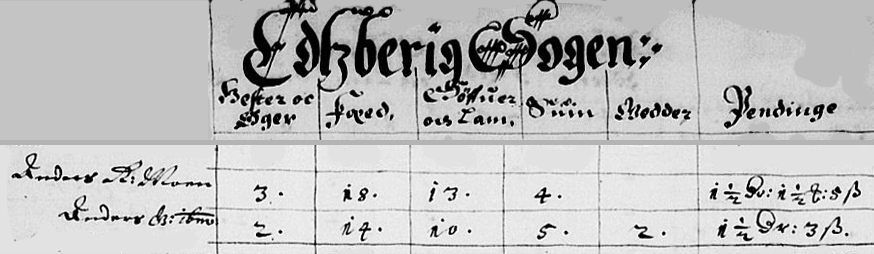 Edtzberig Sogen:
Hester oc Øger Fæed. Søffuer och Lam. Suin Nodder Pendinge
Anders R: Moen 3. 18. 13. 4. 1½ Dr: 1½ 5 ß
Anders ibm 2. 14. 10. 5. 2. 1½ Dr: 3 ß.